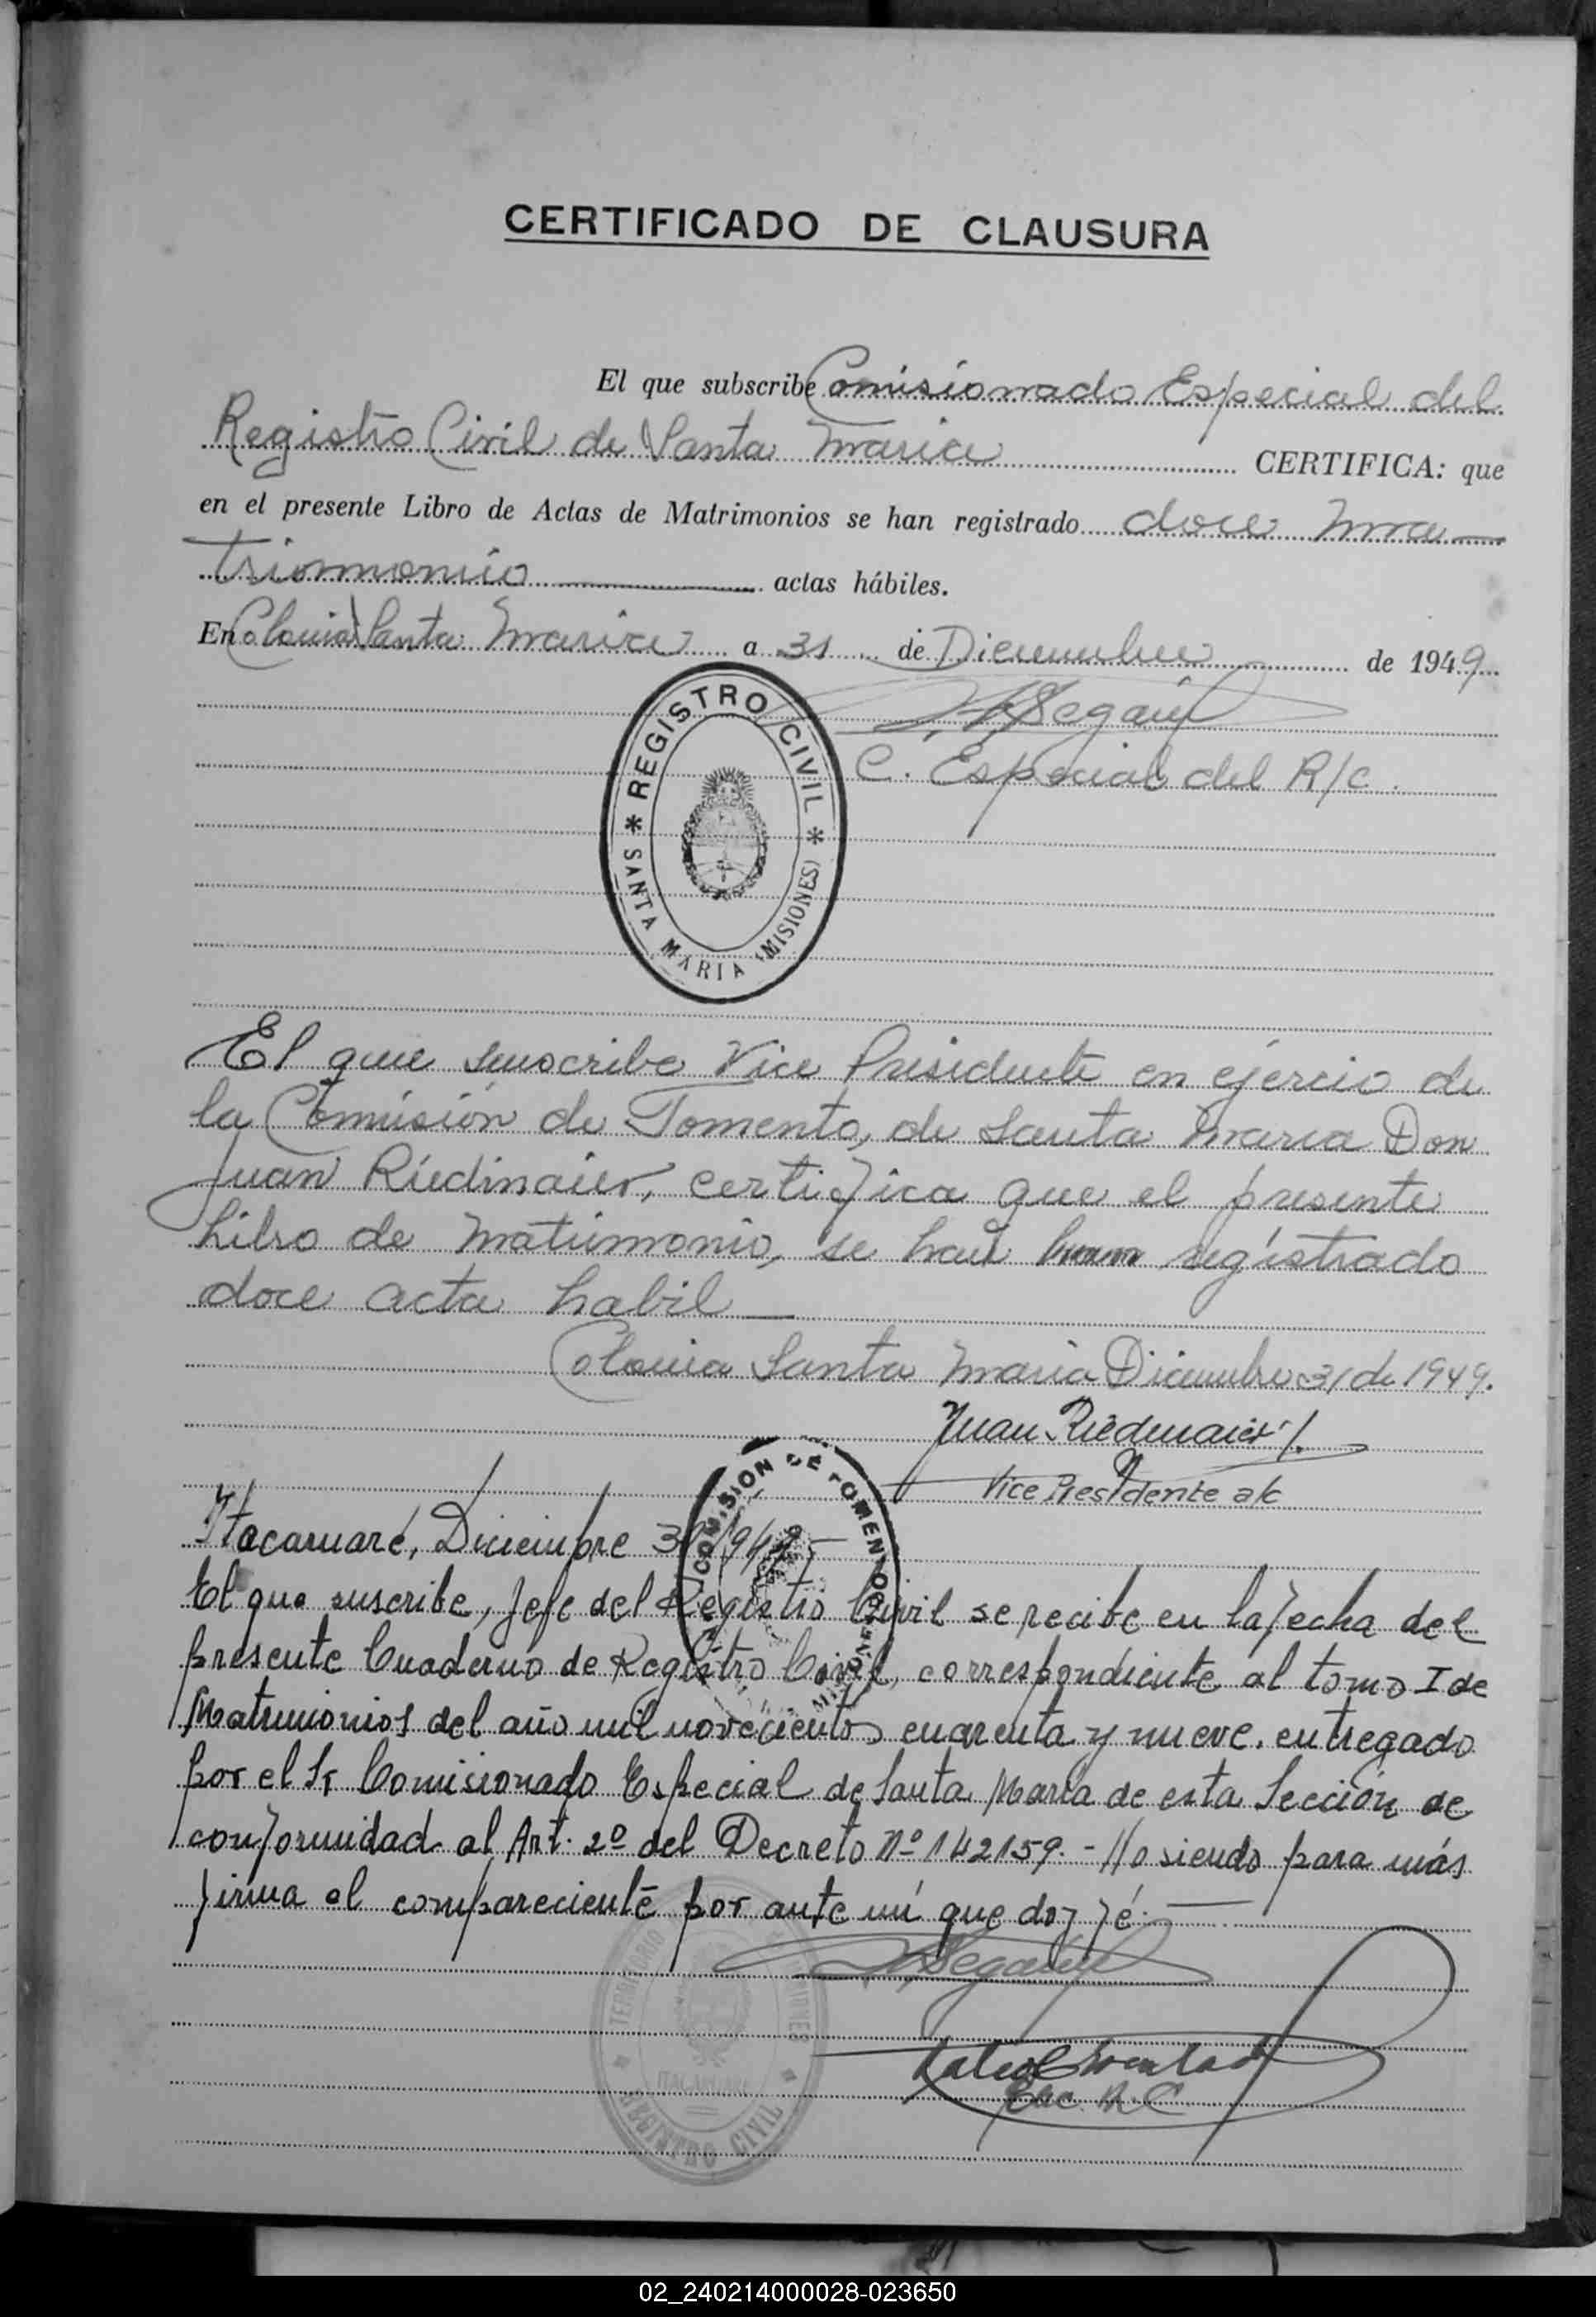 CERTIFICADO DE CLAUSURA
El que subscribe Comisionado Especial del
Registro Civil de Santa Maria CERTIFICA: que
en el presente Libro de Actas de Matrimonios se han registrado doce ma—
trimonio actas hábiles.
En Colonia Santa Maria a 31 de Diciembre de 1949
C. Especial del R/c.
* REGISTRO CIVIL *
SANTA MARIA (MISIONES)
El que suscribe Vice Presidente en ejercio de
la Comisión de Fomento, de Santa Maria Don
Juan Riedmaier, certifica que el presente
Libro de Matrimonio, se han registrado
doce acta habil
Colonia Santa Maria Diciembre 31 de 1949.
Juan Riedmaier
Vice Presidente a/c
COMISION DE FOMENTO
MISIONES
Itacaruaré, Diciembre 31/949
El que suscribe, Jefe del Registro Civil se recibe en la fecha del
presente Cuaderno de Registro Civil, correspondiente al tomo I de
Matrimonios del año mil novecientos cuarenta y nueve. entregado
por el Sr Comisionado Especial de Santa Maria de esta Sección de
conformidad al Art. 2º del Decreto Nº 142159.- No siendo para más
firma el compareciente por ante mí que doy fé.
Enc. R.C.
TERRITORIO MISIONES
ITACARUARE
REGISTRO CIVIL
02_240214000028-023650